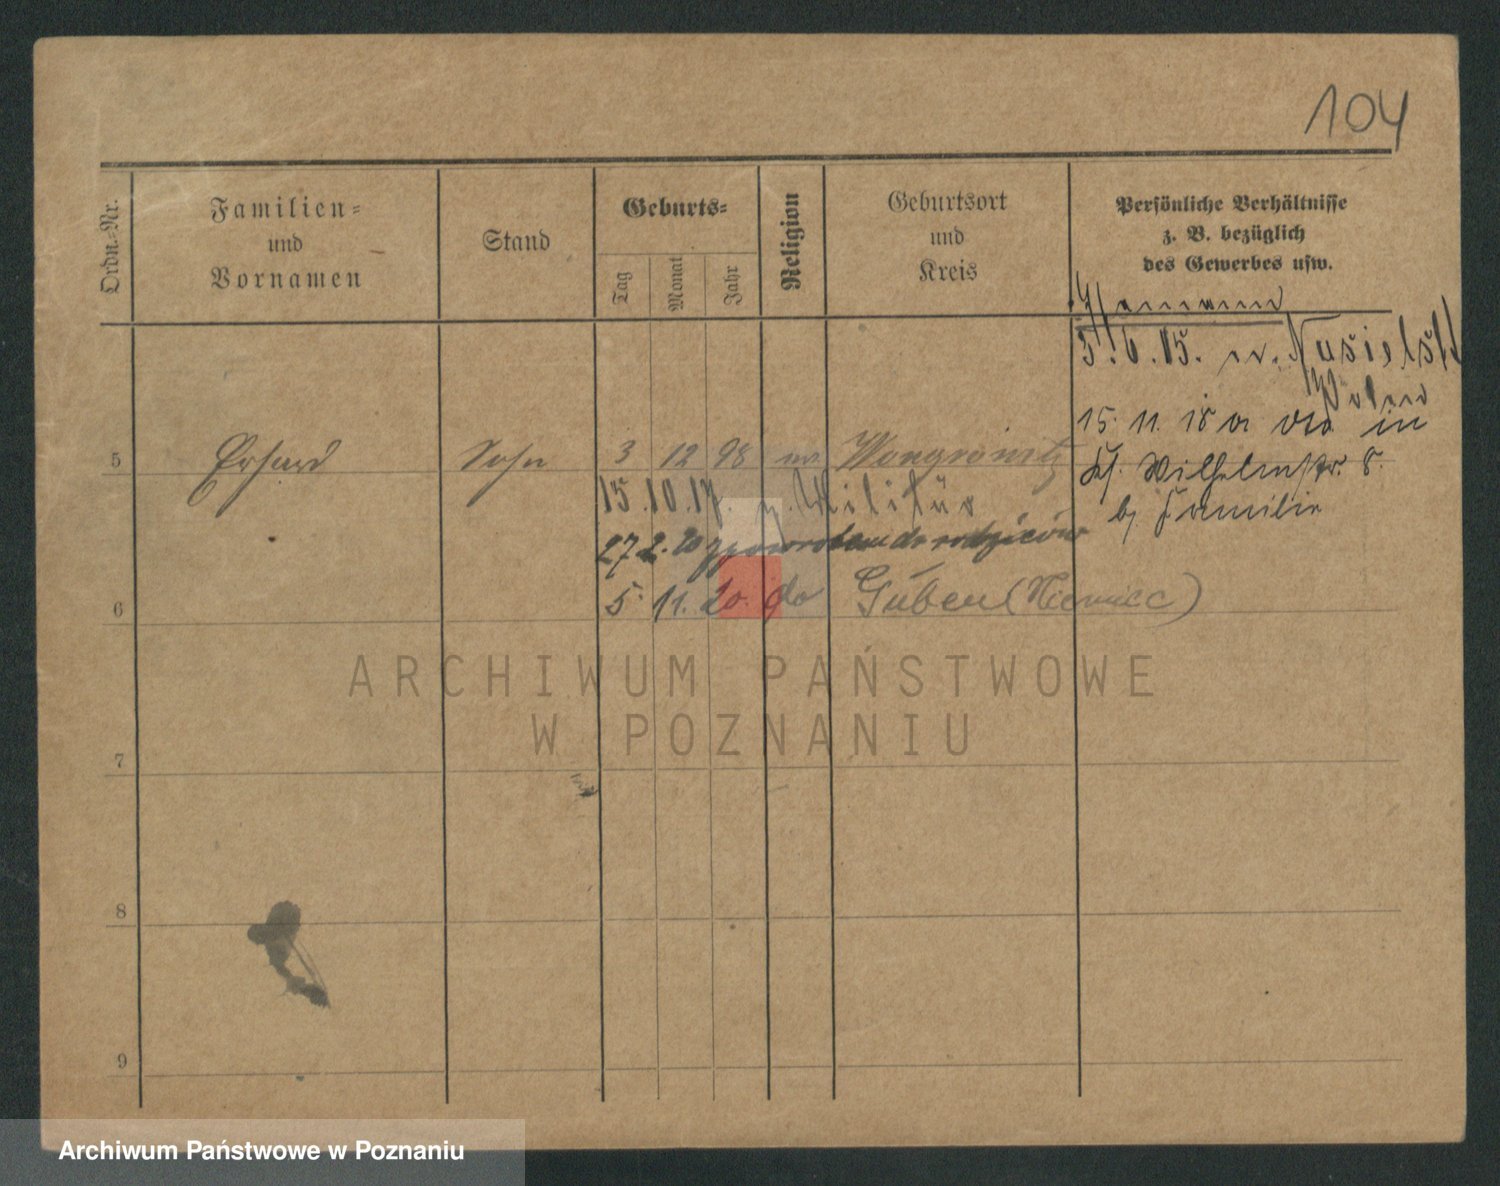 104
Ordn.-Nr.
Familien-
und
Vornamen
Stand
Geburts-
Tag
Monat
Jahr
Religion
Geburtsort
und
Kreis
Persönliche Verhältnisse
z. B. bezüglich
des Gewerbes usw.
Hermann
3. 6. 15. n.
15. 11. 18 in
5 Erhard Sohn 3 12 98 ev. Wongrowitz
Wilhelmstr. 8.
15. 10. 17. z. Militär
b. Familie
27 2. 20 z powrotem do rodziców
6 5. 11. 20. do Guben (Niemcec)
ARCHIWUM PAŃSTWOWE
W POZNANIU
7
8
9
Archiwum Państwowe w Poznaniu